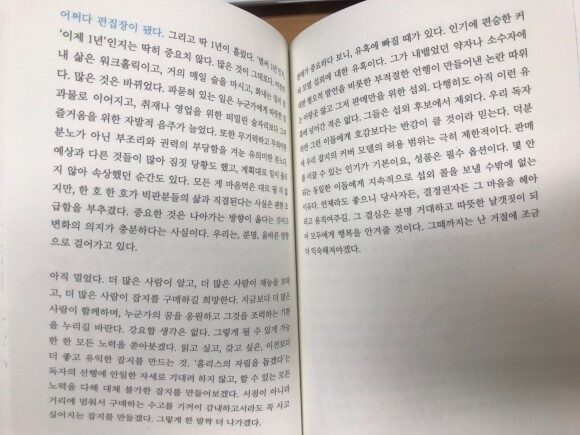 어쩌다 편집장이 됐다. 그리고 딱 1년이 흘렀다. '벌써 1년'인지,
'이제 1년'인지는 딱히 중요치 않다. 많은 것이 그대로다. 여전히
내 삶은 워크홀릭이고, 거의 매일 술을 마시고, 화내는 일이
다. 많은 것은 바뀌었다. 파묻혀 있는 일은 누군가에게 따뜻한
과물로 이어지고, 취재나 영업을 위한 떠밀린 술자리보다 그저
즐거움을 위한 자발적 음주가 늘었다. 또한 무기력하고 무의미한
분노가 아닌 부조리와 권력의 부당함을 겨눈 유의미한 분노다.
예상과 다른 것들이 많아 짐짓 당황도 했고, 계획대로 일이 풀리
지 않아 속상했던 순간도 있다. 모든 게 마음먹은 대로 될 리
지만, 한 호 한 호가 빅판분들의 삶과 직결된다는 사실은 괜한 조
급함을 부추겼다. 중요한 것은 나아가는 방향이 옳다는 것이고
변화의 의지가 충분하다는 사실이다. 우리는, 분명, 올바른 방향
으로 걸어가고 있다.
아직 멀었다. 더 많은 사람이 알고, 더 많은 사람이 재능을 모으
고, 더 많은 사람이 잡지를 구매하길 희망한다. 지금보다 더 많은
사람이 함께하며, 누군가의 꿈을 응원하고 그것을 조력하는 기쁨
을 누리길 바란다. 강요할 생각은 없다. 그렇게 될 수 있게 가능
한 한 모든 노력을 쏟아붓겠다. 읽고 싶고, 갖고 싶은, 이전보다
더 좋고 유익한 잡지를 만드는 것. '홈리스의 자립을 돕겠다'는
독자의 선행에 안일한 자세로 기대려 하지 않고, 할 수 있는 모든
노력을 다해 대체 불가한 잡지를 만들어보겠다. 서점이 아니라
거리에 멈춰서 구매하는 수고를 기꺼이 감내하고서라도 꼭 사고
싶어지는 잡지를 만들겠다. 그렇게 한 발짝 더 나가겠다.
판매가 중요하다 보니, 유혹에 빠질 때가 있다. 인기에 편승한 커
버 모델 섭외에 대한 유혹이다. 그가 내뱉었던 약자나 소수자에
대한 혐오적 발언을 비롯한 부적절한 언행이 만들어낸 논란 따위
는 아랑곳 않고 그저 판매만을 위한 섭외. 다행히도 아직 이런 유
혹에 넘어간 적은 없다. 그들은 섭외 후보에서 제외다. 우리 독자
들은 그런 이들에게 호감보다는 반감이 클 것이라 믿는다. 덕분
에 우리 잡지의 커버 모델의 허용 범위는 극히 제한적이다. 판매
를 이끌 수 있는 인기가 기본이요, 성품은 필수 옵션이다. 몇 안
되는 동일한 이들에게 지속적으로 섭외 콜을 보낼 수밖에 없는
이유다. 언제라도 좋으니 당사자든, 결정권자든 그 마음을 헤아
리고 움직여주길. 그 결심은 분명 거대하고 따뜻한 날갯짓이 되
어 모두에게 행복을 안겨줄 것이다. 그때까지는 난 거절에 조금
더 익숙해져야겠다.